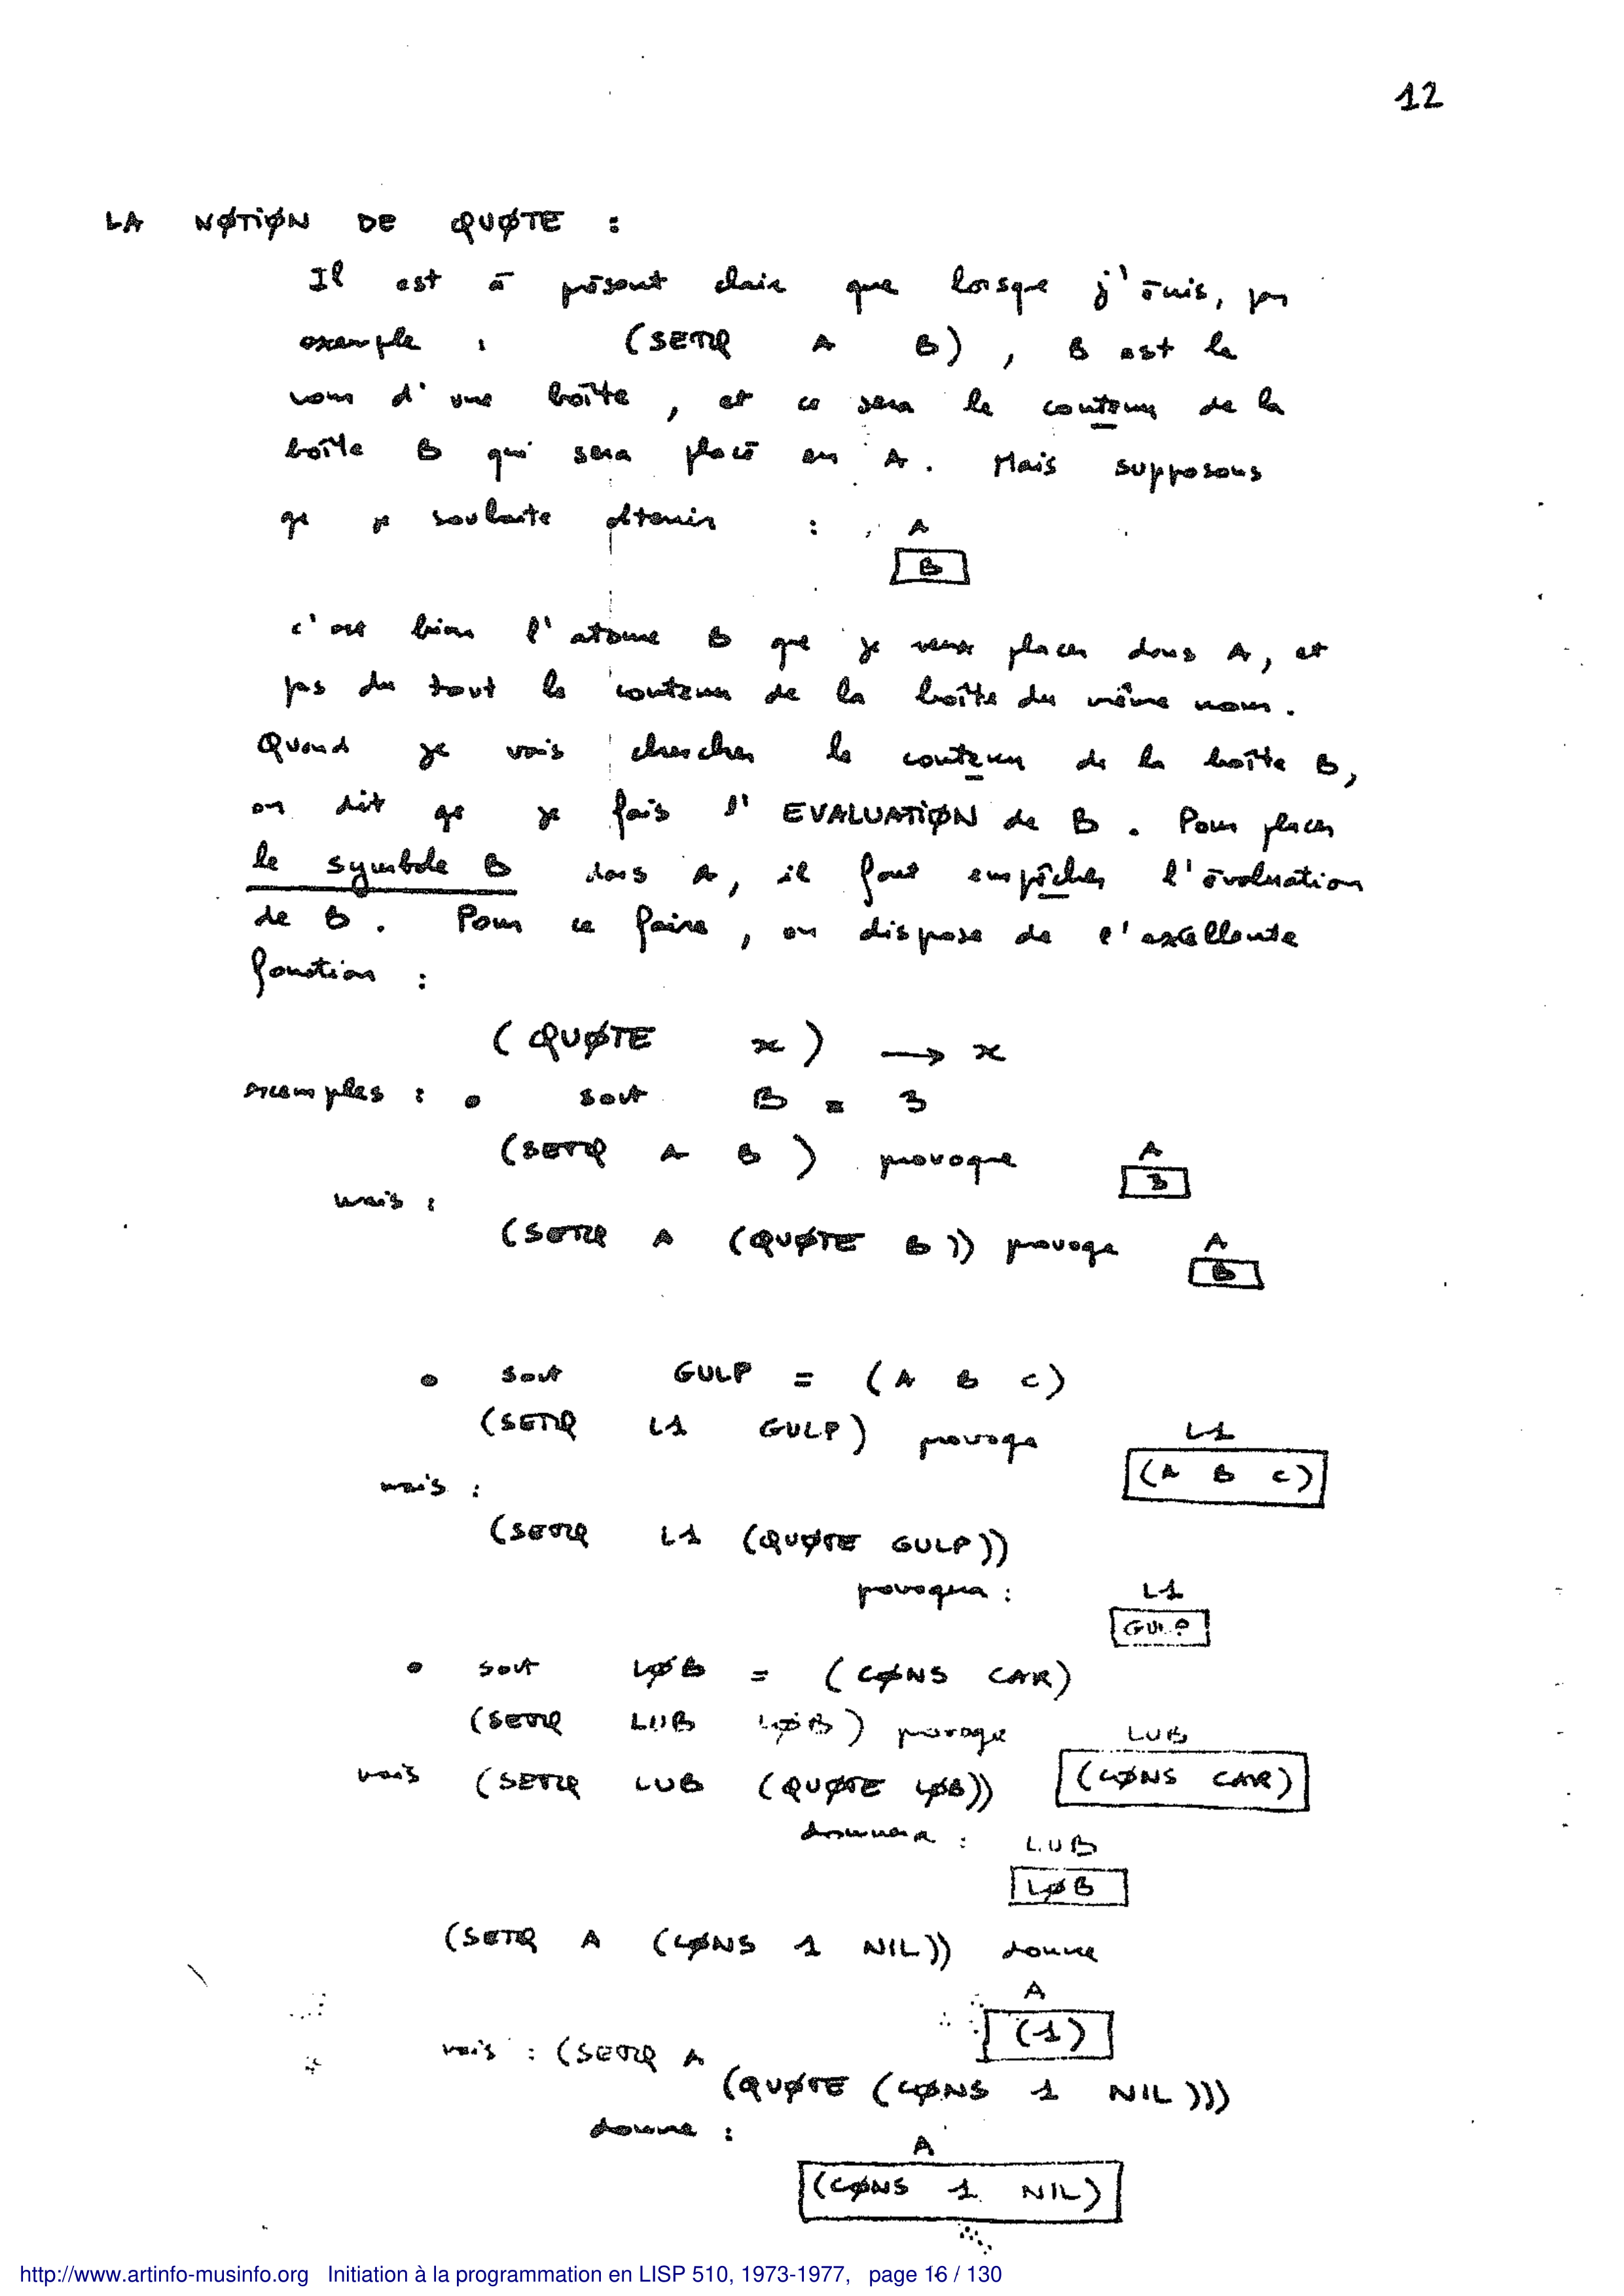 12
LA NØTiØN DE QUØTE :
Il est à présent clair que lorsque j'écris, par
exemple : (SETQ A B), B est le
nom d'une boîte, et ce sera le contenu de la
boîte B qui sera placé en A. Mais supposons
qe je souhaite obtenir : A
B
c'est bien l'atome B que je veux placer dans A, et
pas du tout le contenu de la boîte du même nom.
Quand je vais chercher le contenu de la boîte B,
on dit qe je fais l'EVALUATiØN de B. Pour placer
le symbole B dans A, il faut empêcher l'évaluation
de B. Pour ce faire, on dispose de l'excellente
fonction :
(QUØTE x) → x
exemples : • soit B = 3
(SETQ A B) provoque A
3
mais :
(SETQ A (QUØTE B)) provoqe A
B
• soit GULP = (A B C)
(SETQ L1 GULP) provoqe L1
(A B C)
mais :
(SETQ L1 (QUØTE GULP))
provoquera : L1
GULP
• soit LØB = (CØNS CAR)
(SETQ LUB LØB) provoqe LUB
(CØNS CAR)
mais (SETQ LUB (QUØTE LØB))
donnera : LUB
LØB
(SETQ A (CØNS 1 NIL)) donne
A
(1)
mais : (SETQ A
(QUØTE (CØNS 1 NIL)))
donne :
A
(CØNS 1 NIL)
http://www.artinfo-musinfo.org Initiation à la programmation en LISP 510, 1973-1977, page 16 / 130